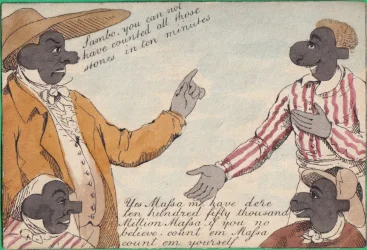 Sambo, you can not
have counted all those
stones in ten minutes
Yes Massa me have dere
ten hundred fifty thousand
Million Massa, if you no
believe, count em Massa
count em yourself